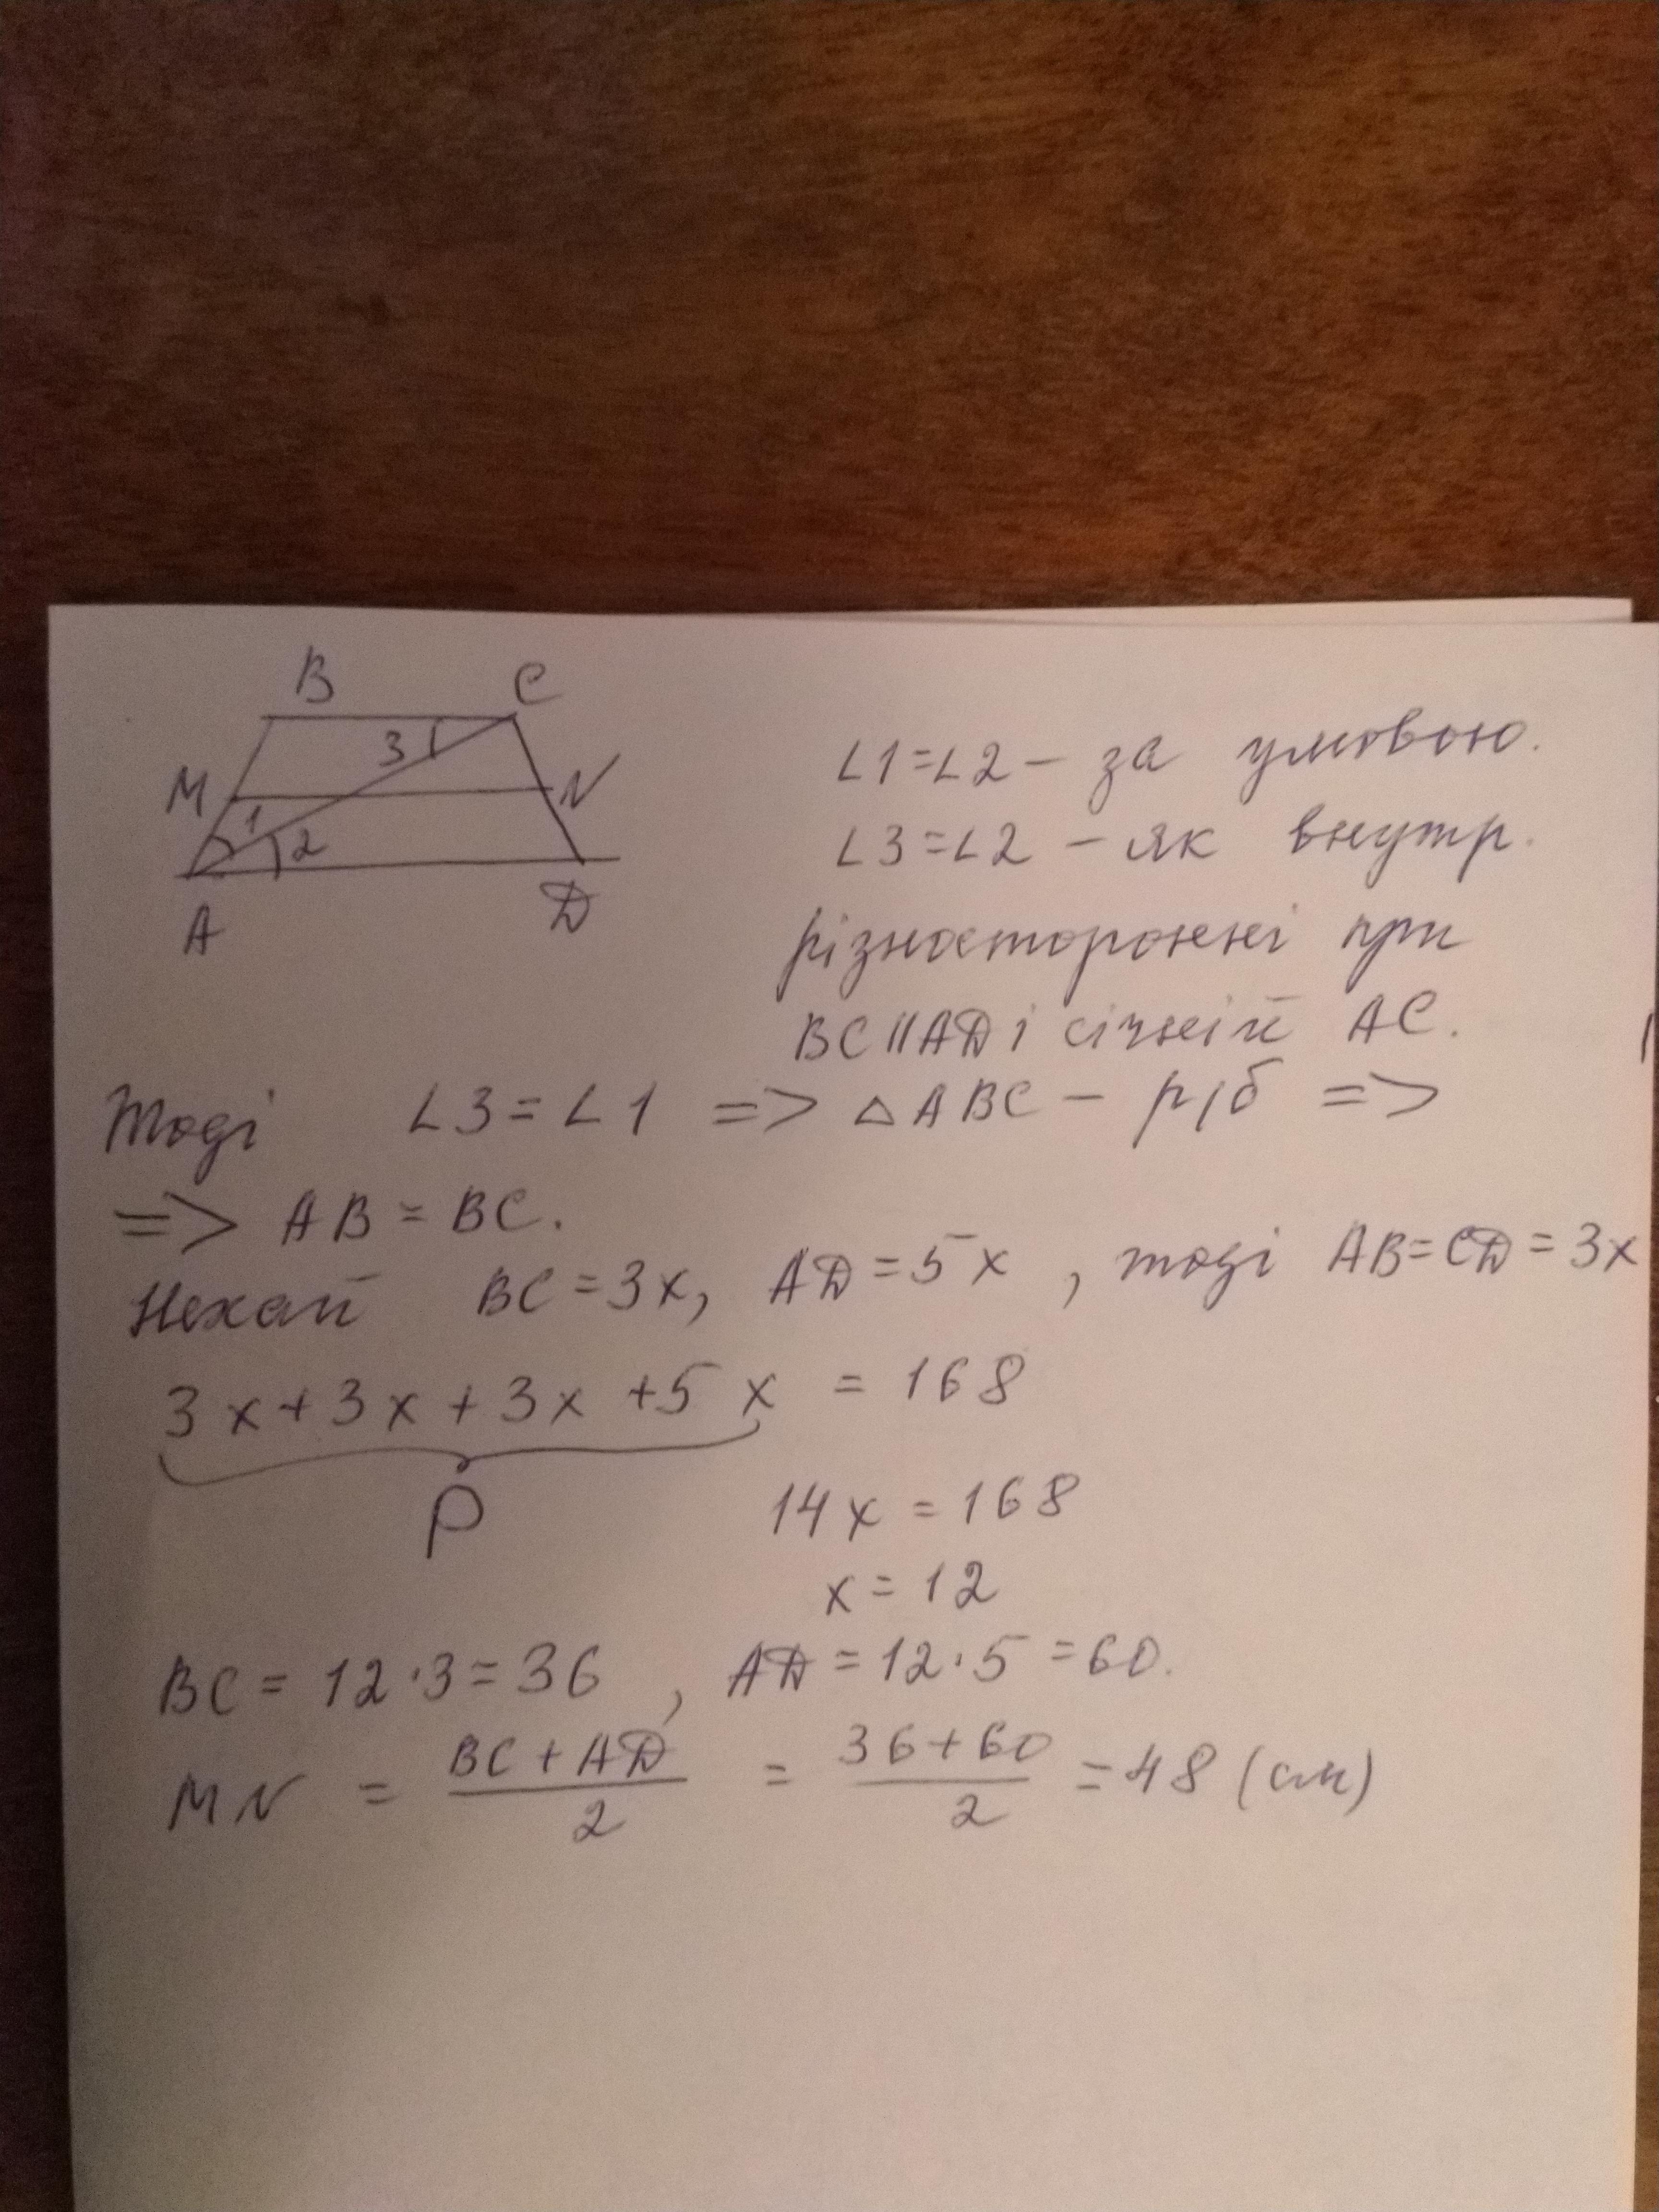 B C
3
M N
1
2
A D
∠1=∠2 – за умовою.
∠3=∠2 – як внутр.
різносторонні при
BC||AD і січній AC.
Тоді ∠3=∠1 => △ABC – р/б =>
=> AB = BC.
Нехай BC=3x, AD=5x, тоді AB=CD=3x
3x+3x+3x+5x = 168
P
14x = 168
x = 12
BC = 12·3=36, AD=12·5=60.
MN = (BC+AD)/2 = (36+60)/2 = 48 (см)